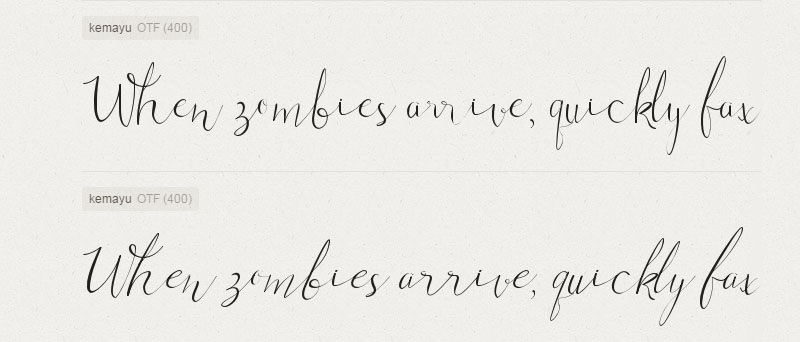 kemayu OTF (400)
When zombies arrive, quickly fax
kemayu OTF (400)
When zombies arrive, quickly fax